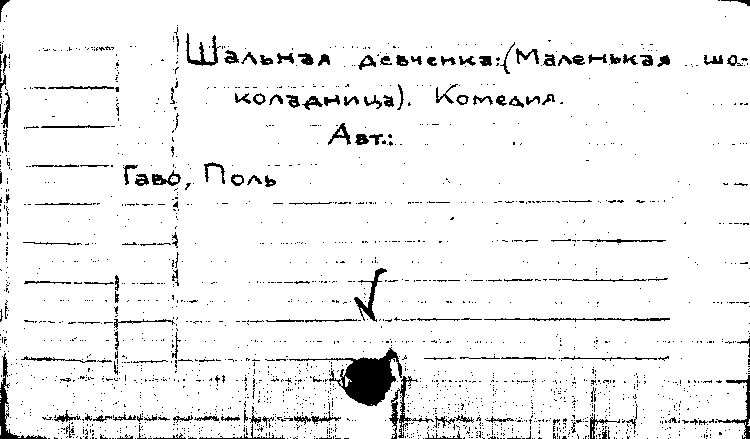 Шальная девченка:(Маленькая шо-
коладница). Комедия.
Авт.:
Гаво, Поль